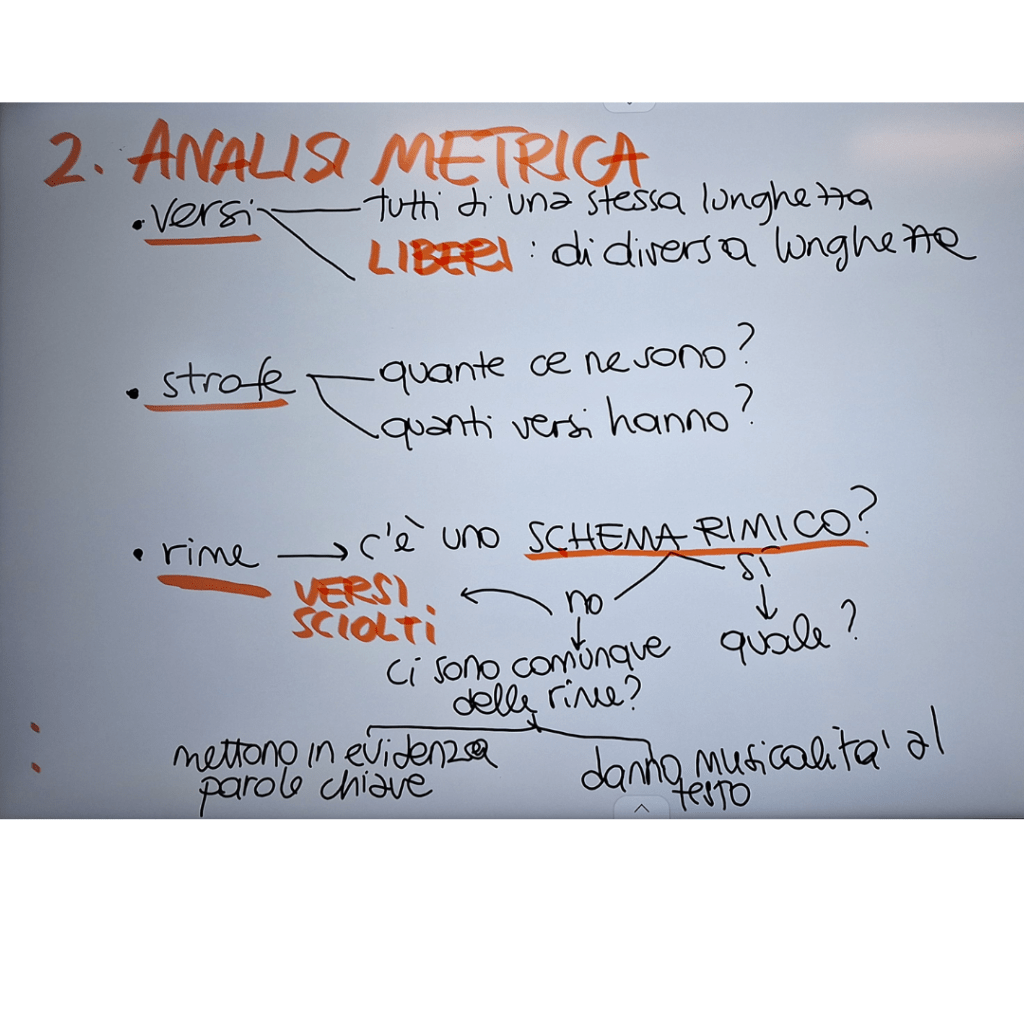 2. ANALISI METRICA
• versi
tutti di una stessa lunghezza
LIBERI : di diversa lunghezze
• strofe
quante ce ne sono?
quanti versi hanno?
• rime → c'è uno SCHEMA RIMICO?
VERSI
SCIOLTI
no
sì
quale?
ci sono comunque
delle rime?
mettono in evidenza
parole chiave
danno musicalità al
testo